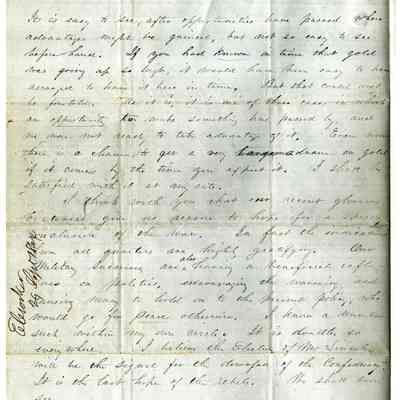 It is easy to see, after opportunities have passed where
advantages might be gained, but not so easy to see
before hand. If you had known in time that gold
was going up so high, it would have been easy to have
arranged to have it here in time. But that could not
be foretold. As it is, it is one of those cases in which
an opportunity to make something has passed by, and
we were not ready to take advantage of it. Even now
there is a chance to get a very advance on gold
if it comes by the time you expect it. I shall be
satisfied with it at any rate.
I think with you that our recent glorious
give us reason to hope for a speedy
conclusion of the war. In fact the
from all quarters are highly gratifying. Our
Military successes are also having a beneficial effect
on politics, encouraging the wavering and
causing many to hold on to the present policy, who
would go for peace otherwise. I know a number
such within my own circle. It is doubtless so
every where. I believe the Election of Mr Lincoln
will be the signal for the downfall of the Confederacy.
It is the last hope of the rebels. We shall soon
see